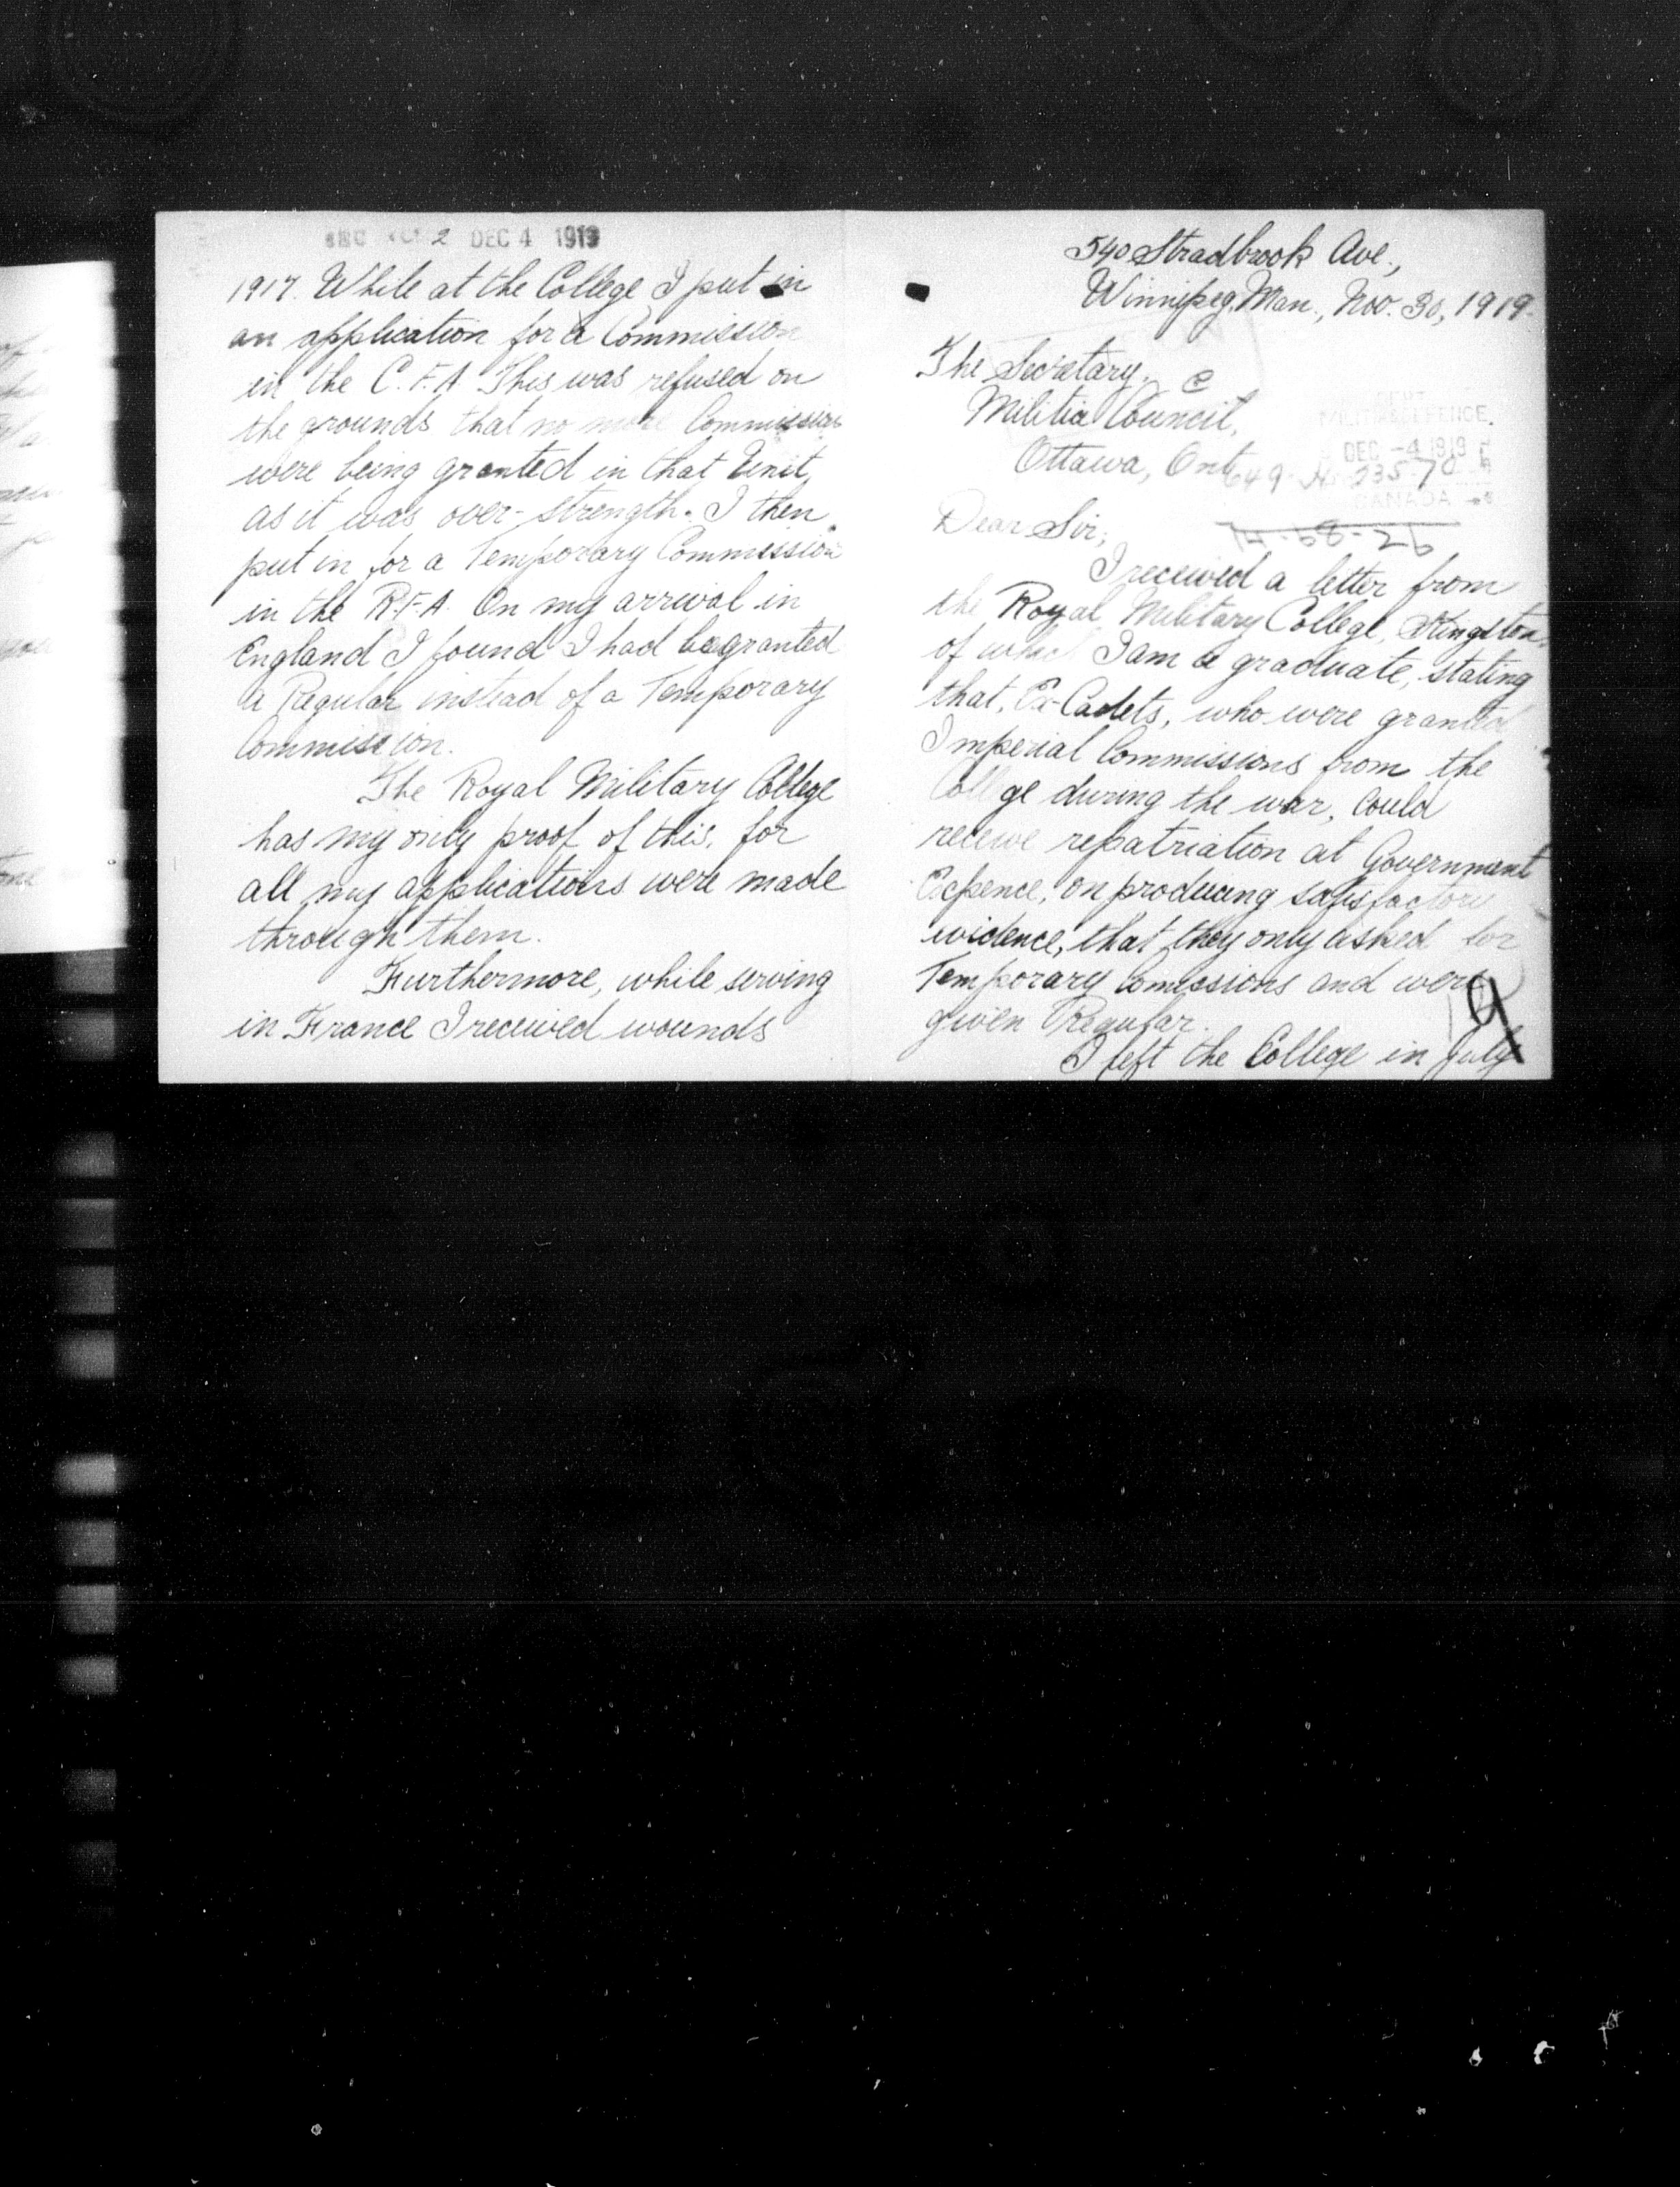 540 Stradbrook Ave.,
Winnipeg, Man., Nov. 30, 1919.
The Secretary,
Militia Council,
Ottawa, Ont.
DEFENCE.
DEC -4 1919
CANADA
649-
Dear Sir,
I received a letter from
the Royal Military College, Kingston,
of which I am a graduate, stating
that, Ex-Cadets, who were granted
Imperial Commissions from the
College during the war, could
receive repatriation at Government
Expence, on producing satisfactory
evidence, that they only asked for
Temporary Comissions and were
given Regular.
I left the College in July
2 DEC 4 1919
1917. While at the College I put in
an application for a Commission
in the C.F.A. This was refused on
the grounds that no more Commissions
were being granted in that Unit,
as it was over-strength. I then
put in for a Temporary Commission
in the R.F.A. On my arrival in
England I found I had be granted
a Regular instead of a Temporary
Commission.
The Royal Military College
has my only proof of this, for
all my applications were made
through them.
Furthermore, while serving
in France I received wounds